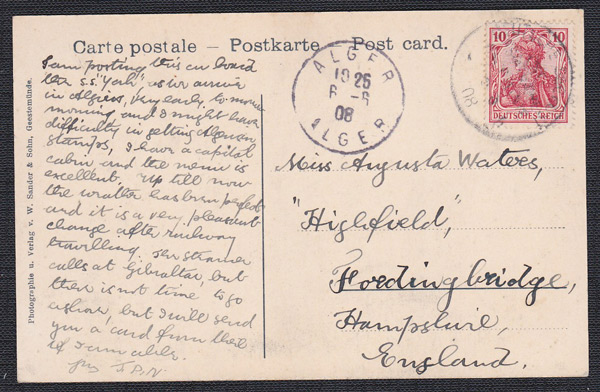 Carte postale – Postkarte – Post card.
I am posting this on board
the S.S. "York", as we arrive
in Algiers, very early, to-morrow
morning and I might have
difficulty in getting Algerian
stamps, I have a capital
cabin and the menu is
excellent. Up till now
the weather has been perfect
and it is a very pleasant
change after railway
travelling. Our steamer
calls at Gibraltar, but
there is not time to go
ashore, but I will send
you a card from there
if I am able.
Photographie u. Verlag v. W. Sander & Sohn, Geestemünde.
ALGER
08
ALGER
10 10
DEUTSCHES REICH
08
Miss Augusta Waters,
"Highfield,"
Fordingbridge,
Hampshire,
England.